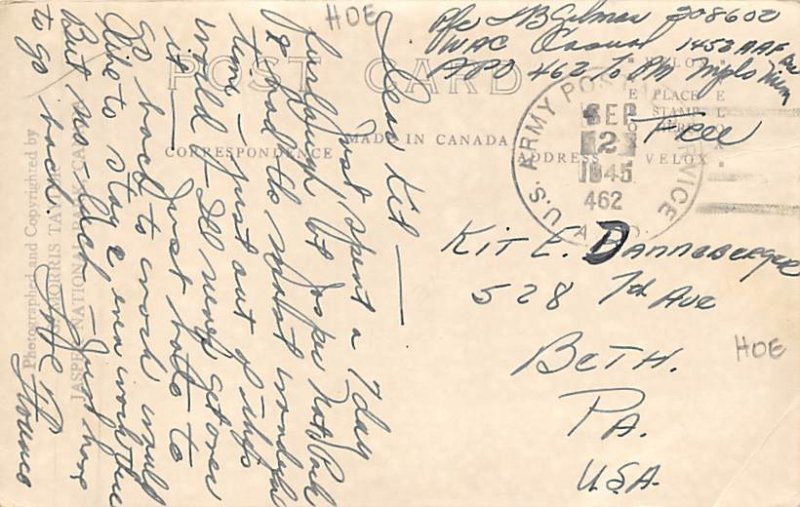 HOE
Pfc L B Gilman 208602
WAC Casual 1452 AAF
APO 462 To PM Mpls Minn
Free
POST CARD
MADE IN CANADA
CORRESPONDENCE
ADDRESS
VELOX
PLACE
STAMP
HERE
U.S. ARMY POSTAL SERVICE
SEP
2
1945
462
A.P.O.
Kit E. Danneberger
528 7th Ave
BETH.
PA.
USA.
HOE
Dear Kit —
Just spent a 7 day
furlough at Jasper Nat Park
& had the most wonderful
time — just out of this
world — I'll never get over
it — Just hate to
go back to work would
like to stay & even work there
But no-such — Just have
to go back.
Photographed and Copyrighted by
MORRIS TAYLOR
JASPER NATIONAL PARK, CANADA